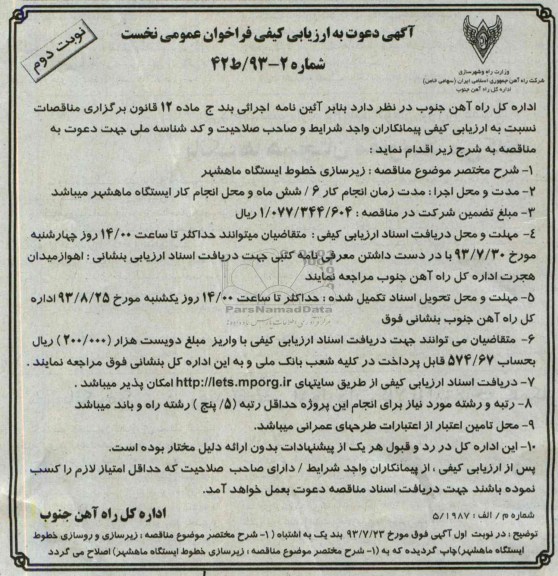 آگهی دعوت به ارزیابی کیفی فراخوان عمومی نخست
شماره ۲-۹۳/ط۴۲
نوبت دوم
وزارت راه وشهرسازی
شرکت راه آهن جمهوری اسلامی ایران (سهامی خاص)
اداره کل راه آهن جنوب
اداره کل راه آهن جنوب در نظر دارد بنابر آئین نامه اجرائی بند ج ماده ۱۲ قانون برگزاری مناقصات
نسبت به ارزیابی کیفی پیمانکاران واجد شرایط و صاحب صلاحیت و کد شناسه ملی جهت دعوت به
مناقصه به شرح زیر اقدام نماید :
۱- شرح مختصر موضوع مناقصه : زیرسازی خطوط ایستگاه ماهشهر
۲- مدت و محل اجرا : مدت زمان انجام کار ۶ / شش ماه و محل انجام کار ایستگاه ماهشهر میباشد
۳- مبلغ تضمین شرکت در مناقصه : ۱/۰۷۷/۳۴۴/۶۰۴ ریال
۴- مهلت و محل دریافت اسناد ارزیابی کیفی : متقاضیان میتوانند حداکثر تا ساعت ۱۴/۰۰ روز چهارشنبه
مورخ ۹۳/۷/۳۰ با در دست داشتن معرفی نامه کتبی جهت دریافت اسناد ارزیابی بنشانی : اهواز میدان
هجرت اداره کل راه آهن جنوب مراجعه نمایند
۵- مهلت و محل تحویل اسناد تکمیل شده : حداکثر تا ساعت ۱۴/۰۰ روز یکشنبه مورخ ۹۳/۸/۲۵ اداره
کل راه آهن جنوب بنشانی فوق
۶- متقاضیان می توانند جهت دریافت اسناد ارزیابی کیفی با واریز مبلغ دویست هزار (۲۰۰/۰۰۰) ریال
بحساب ۵۷۴/۶۷ قابل پرداخت در کلیه شعب بانک ملی و به این اداره کل بنشانی فوق مراجعه نمایند .
۷- دریافت اسناد ارزیابی کیفی از طریق سایتهای http://iets.mporg.ir امکان پذیر میباشد .
۸- رتبه و رشته مورد نیاز برای انجام این پروژه حداقل رتبه (۵/ پنج ) رشته راه و باند میباشد
۹- محل تامین اعتبار از اعتبارات طرحهای عمرانی میباشد.
۱۰- این اداره کل در رد و قبول هر یک از پیشنهادات بدون ارائه دلیل مختار بوده است.
پس از ارزیابی کیفی ، از پیمانکاران واجد شرایط / دارای صاحب صلاحیت که حداقل امتیاز لازم را کسب
نموده باشند جهت دریافت اسناد مناقصه دعوت بعمل خواهد آمد.
شماره م / الف : ۵/۱۹۸۷
اداره کل راه آهن جنوب
توضیح : در نوبت اول آگهی فوق مورخ ۹۳/۷/۲۳ بند یک به اشتباه ( ۱- شرح مختصر موضوع مناقصه : زیرسازی و روسازی خطوط
ایستگاه ماهشهر)چاپ گردیده که به (۱- شرح مختصر موضوع مناقصه : زیرسازی خطوط ایستگاه ماهشهر) اصلاح می گردد
ParsNamadData